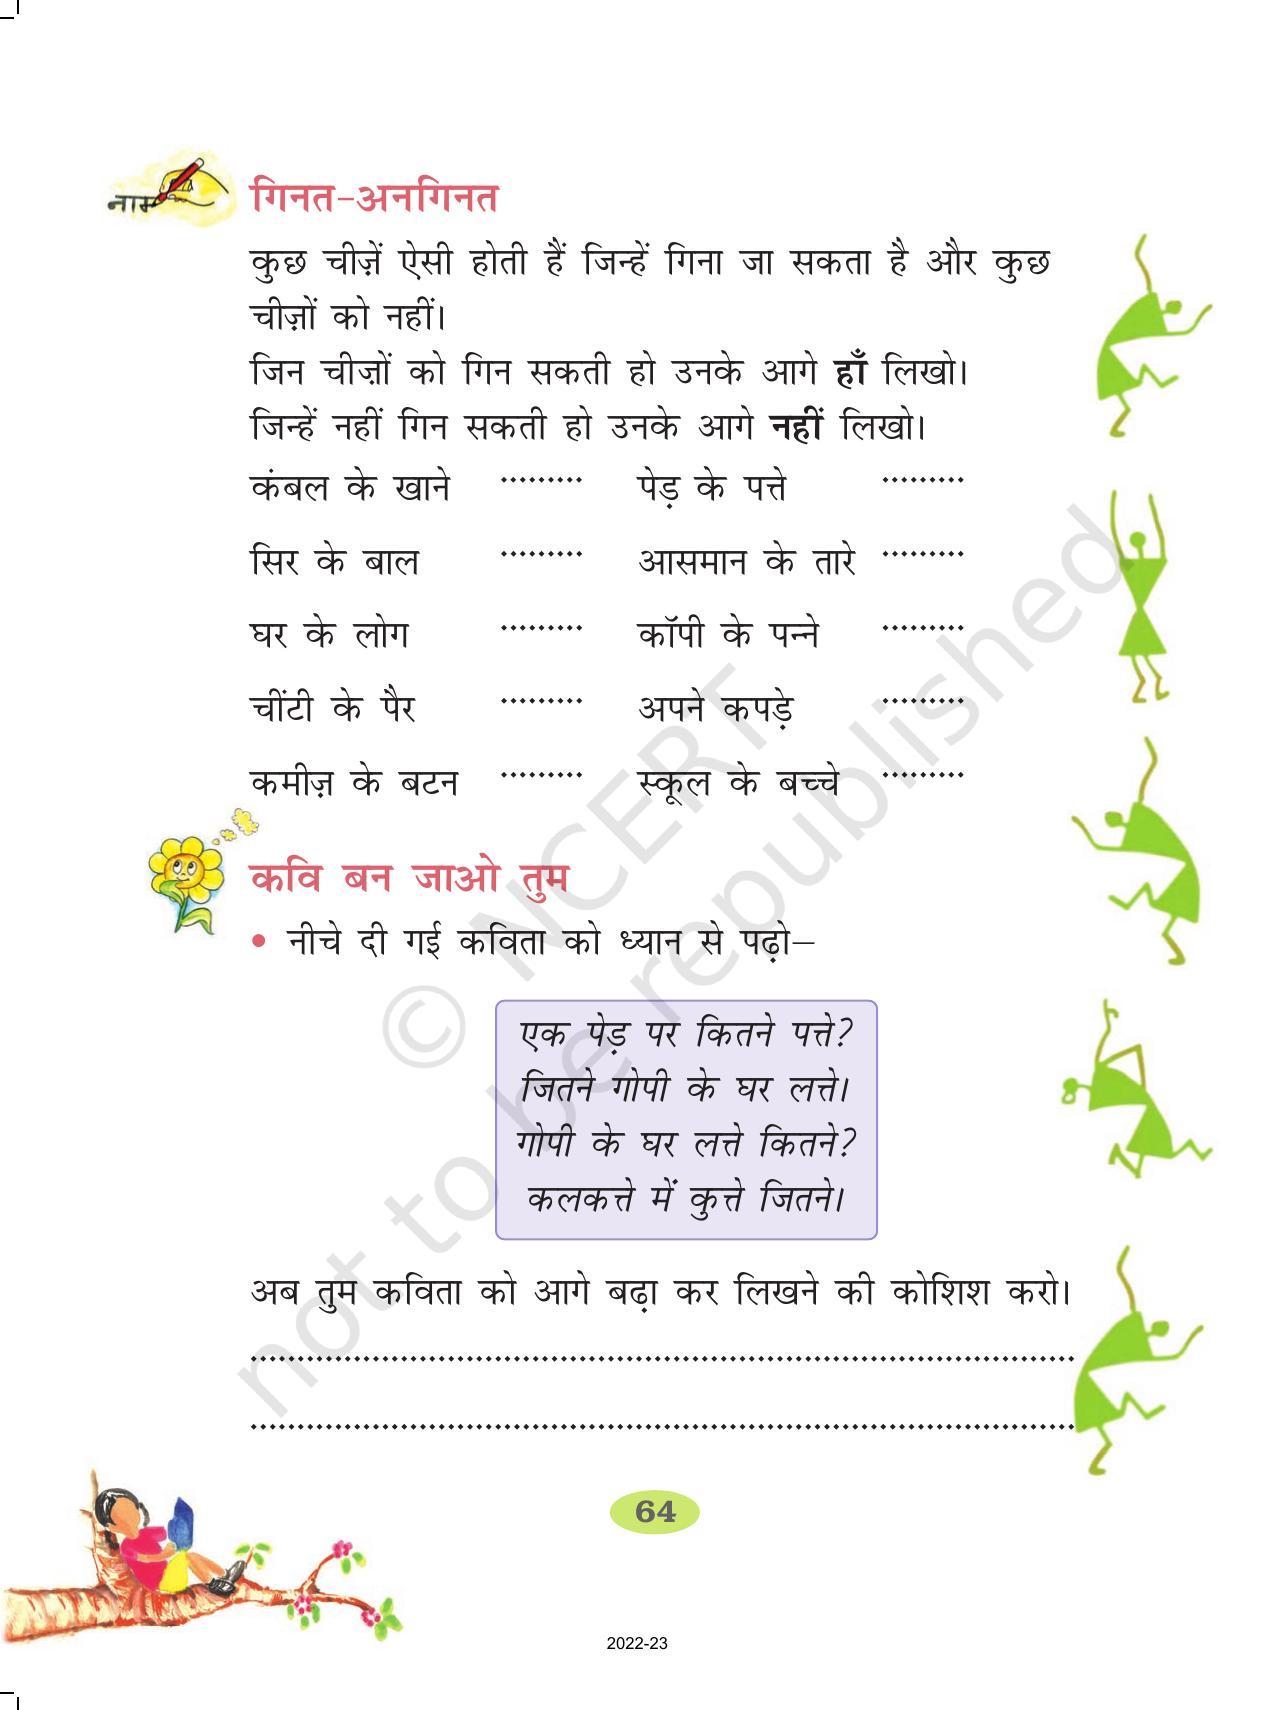 नाम
गिनत-अनगिनत
कुछ चीज़ें ऐसी होती हैं जिन्हें गिना जा सकता है और कुछ
चीज़ों को नहीं।
जिन चीज़ों को गिन सकती हो उनके आगे हाँ लिखो।
जिन्हें नहीं गिन सकती हो उनके आगे नहीं लिखो।
कंबल के खाने ......... पेड़ के पत्ते .........
सिर के बाल ......... आसमान के तारे .........
घर के लोग ......... कॉपी के पन्ने .........
चींटी के पैर ......... अपने कपड़े .........
कमीज़ के बटन ......... स्कूल के बच्चे .........
कवि बन जाओ तुम
• नीचे दी गई कविता को ध्यान से पढ़ो–
एक पेड़ पर कितने पत्ते?
जितने गोपी के घर लत्ते।
गोपी के घर लत्ते कितने?
कलकत्ते में कुत्ते जितने।
अब तुम कविता को आगे बढ़ा कर लिखने की कोशिश करो।
64
2022-23
© NCERT
not to be republished